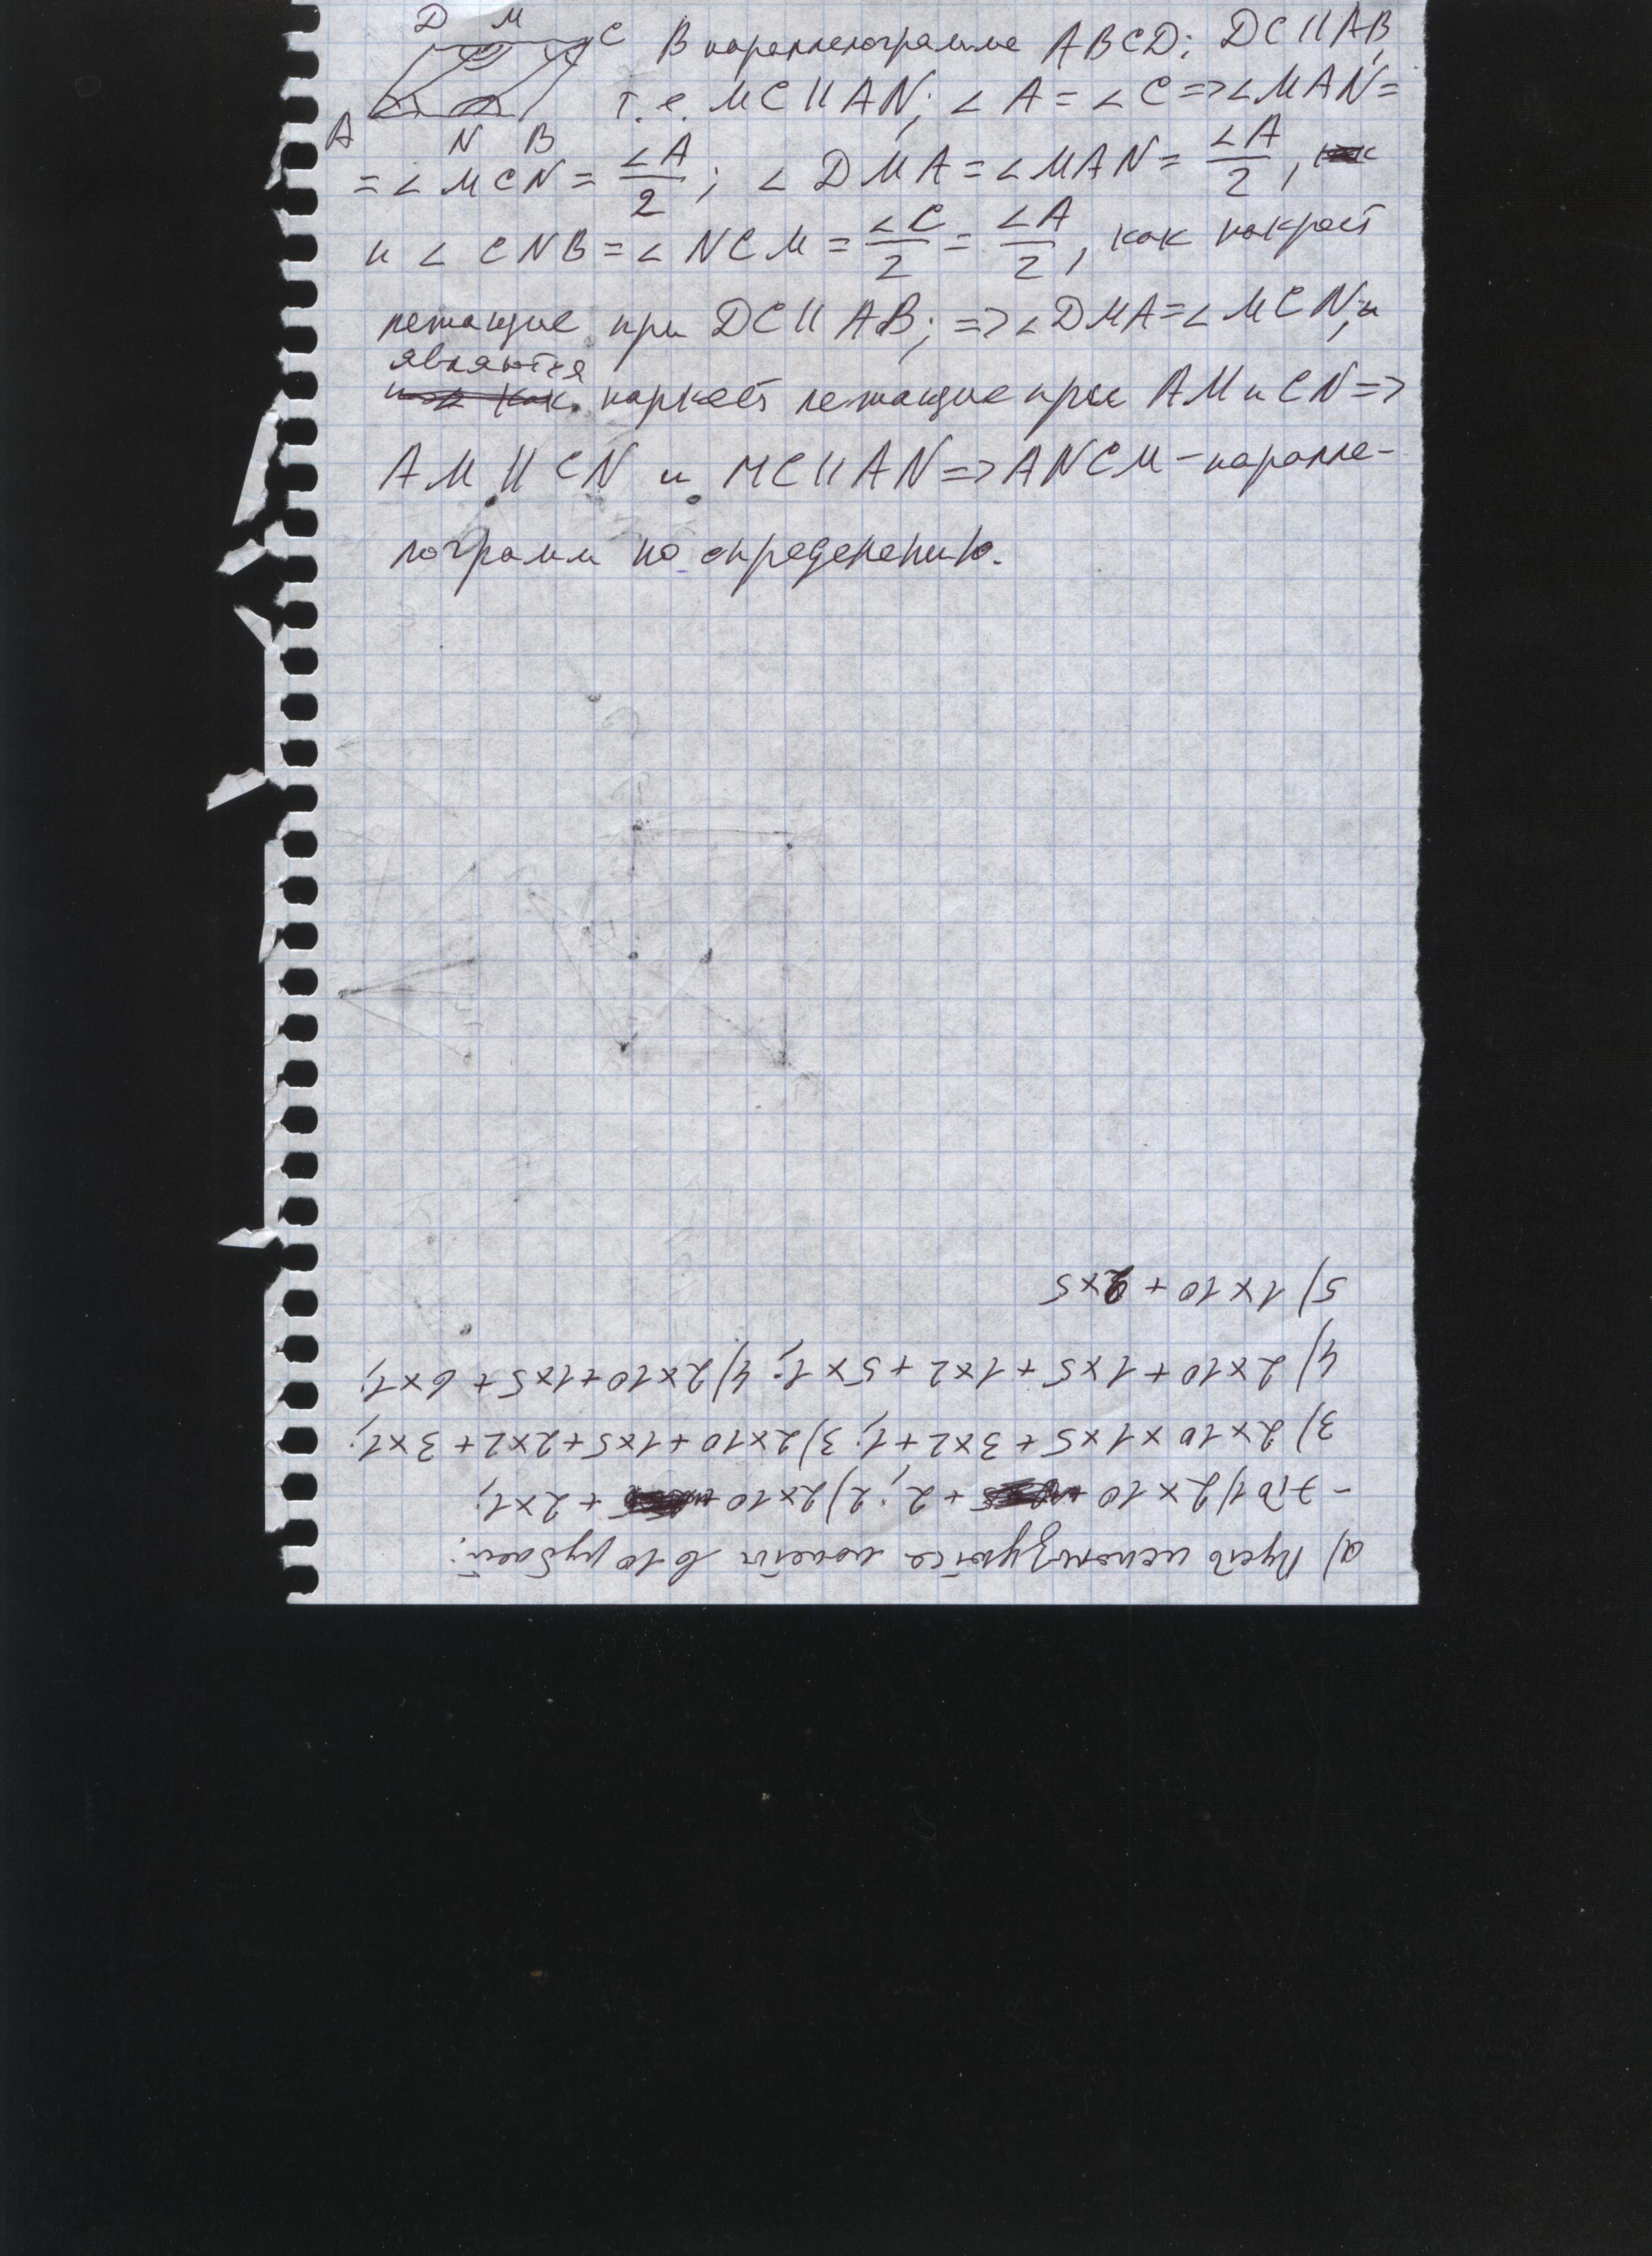 D M C В пареллелограмме ABCD: DC || AB,
т.е. MC || AN; ∠A = ∠C => ∠MAN =
A N B
= ∠MCN = ∠A/2; ∠DMA = ∠MAN = ∠A/2,
и ∠CNB = ∠NCM = ∠C/2 = ∠A/2, как накрест
лежащие при DC || AB; => ∠DMA = ∠MCN, и
являются
накрест лежащие при AM и CN =>
AM || CN и MC || AN => ANCM - паралле-
лограмм по определению.
а) Пусть используются монеты в 10 рублей:
2x10 + 2; 2) 2x10 + 2x1;
3) 2x10x1x5 + 3x2+1; 3) 2x10+1x5+2x2+3x1;
4) 2x10+1x5+1x2+5x1; 4) 2x10+1x5+6x1;
5) 1x10+2x5